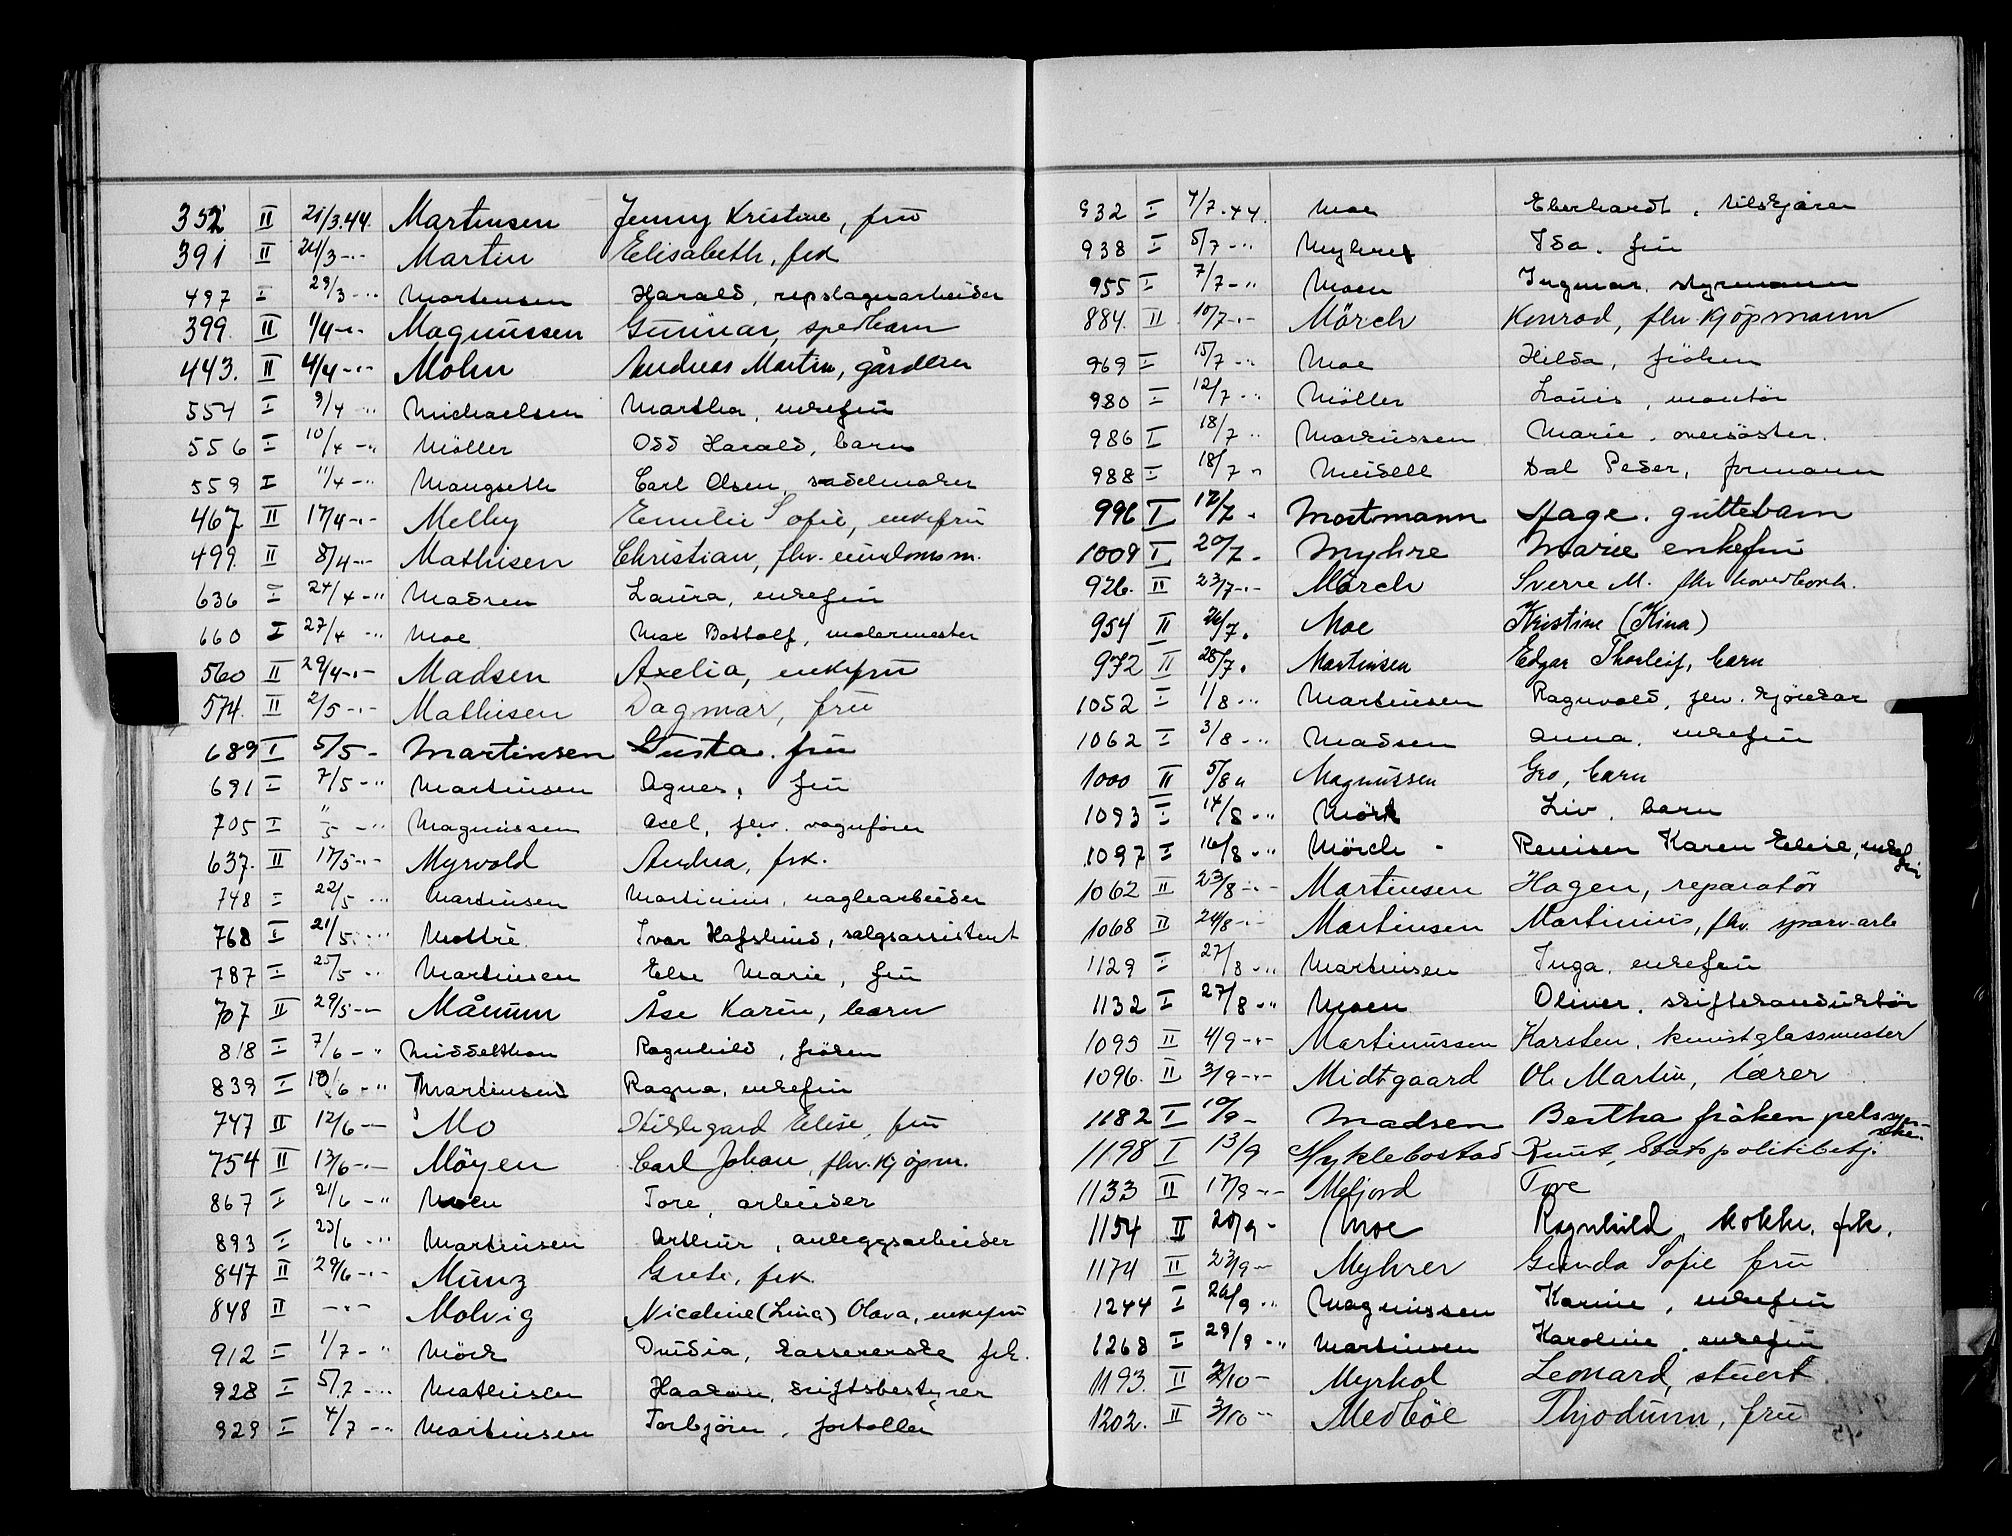 352 II 21/3.44. Martinsen Jenny Kristine, frü
391 II 24/3 -"- Martin Elisabeth, frk
497 I 29/3 -"- Mortensen Harald, repslagerarbeider
399. II 1/4 -"- Magnüssen Günnar, spedbarn
443. II 4/4 -"- Mohn Andreas Martin, gårdeier
554 I 9/4 -"- Michaelsen Martha, enkefrü
556 I 10/4 -"- Möller Odd Harald, barn
559 I 11/4 -"- Mangseth Carl Olsen, sadelmaker
467 II 17/4 -"- Melby Emilie Sofie, enkefrü
499. II 8/4 -"- Mathisen Christian, fhv. eiendomsm.
636 I 24/4 -"- Madsen Laüra, enkefrü
660 I 27/4 -"- Moe Botolf, malermester
560 II 29/4 -"- Madsen Axelia, enkefrü
574. II 2/5 -"- Mathisen Dagmar, frü
689 I 5/5 - Martinsen Gusta. frü
691 I 7/5 -" Martinsen Agnes, frü
705 I "/5 -" Magnüssen Axel, fhv. vognfører
637. II 17/5 -"- Myrvold Andrea, frk.
748 I 22/5 -"- Martinsen Martinius, naglearbeider
768 I 21/5 -"- Mottré Ivar Hafslund, salgsassistent
787 I 25/5 -"- Martinsen Else Marie, frü
707 II 29/5 -"- Månüm Åse Karin, barn
818 I 7/6 -" Middelthon Ragnhild, frøken
839 I 10/6 -" Martinsen Ragna, enkefrü
747 II 12/6 -"- Mo Hildegard Elise, frü
754 II 13/6 -"- Möyen Carl Johan, fhv. kjöpm.
867 I 21/6 -" Moen Tore, arbeider
893 I 23/6 -" Martinsen Arthür, anleggsarbeider
847 II 29/6 -"- Münz Grete, frk.
848 II -"- Molvig Nicoline (Lina) Olava, enkefrü
912 I 1/7 -" Mörk kassererske frk.
928 I 5/7 -"- Mathisen Haakon, skiftsbestyrer
929 I 4/7 -"- Martinsen Torbjörn, fortoller
932 I 4/7.44. Moe Eberhardt, tilskjærer
938 I 5/7 -" Myhre Ida. frü
955 I 7/7 -" Moen Ingmar, styrmann
884. II 10/7 -"- Mörch Konrad, fhv kjöpmann
969 I 15/7 -" Moe Hilda, fröken
980 I 12/7 -" Möller Loüis, montör
986 I 18/7 -" Markussen Marie, oversöster.
988 I 18/7 " Meidell Dal Peder, formann
996 I 12/7 - Mortmann Stage. güttebarn
1009 I 20/7 - Myhre Marie enkefrü
926. II 23/7 -"- Mörch Sverre M. fhv hovedbokh.
954 II 26/7. Moe Kristine (Kina)
972 II 28/7. Martinsen Edgar Thorleif, barn
1052 I 1/8 -" Martinsen Ragnvald, fhv.
1062 I 3/8 -" Madsen Anna, enkefrü
1000 II 5/8 " Magnüssen Gro, barn
1093 I 14/8 -" Mörk Liv, barn
1097 I 16/8 -" Mörch - Karen Elise, enkefrü
1062 II 23/8 -"- Martinsen Hagen, reparatör
1068 II 24/8 -"- Martinsen Martinius, fhv. sporv-arb
1129 I 27/8 -" Martinsen Inga, enkefrü
1132 I 27/8 -" Moen Oliver,
1095 II 4/9 -"- Martinüssen Karsten, künstglassmester
1096. II 3/9 -"- Midtgaard Ole Martin, lærer
1182 I 10/9 - Madsen Bertha fröken pelssyerske.
1198 I 13/9 Myklebostad Knut, Statspolitibetj.
1133 II 17/9 -"- Mefjord Tove
1154 II 20/9 - Moe Ragnhild, kokke, frk.
1174 II 23/9 -"- Myhrer Gunda Sofie frü
1244 I 26/9 -" Magnüssen Karine, enkefrü
1268 I 29/9 -" Martinsen Karoline, enkefrü
1193. II 2/10 - Myrhol Leonard, stüert.
1202. II 3/10 -" Medböe Thjodunn, frü